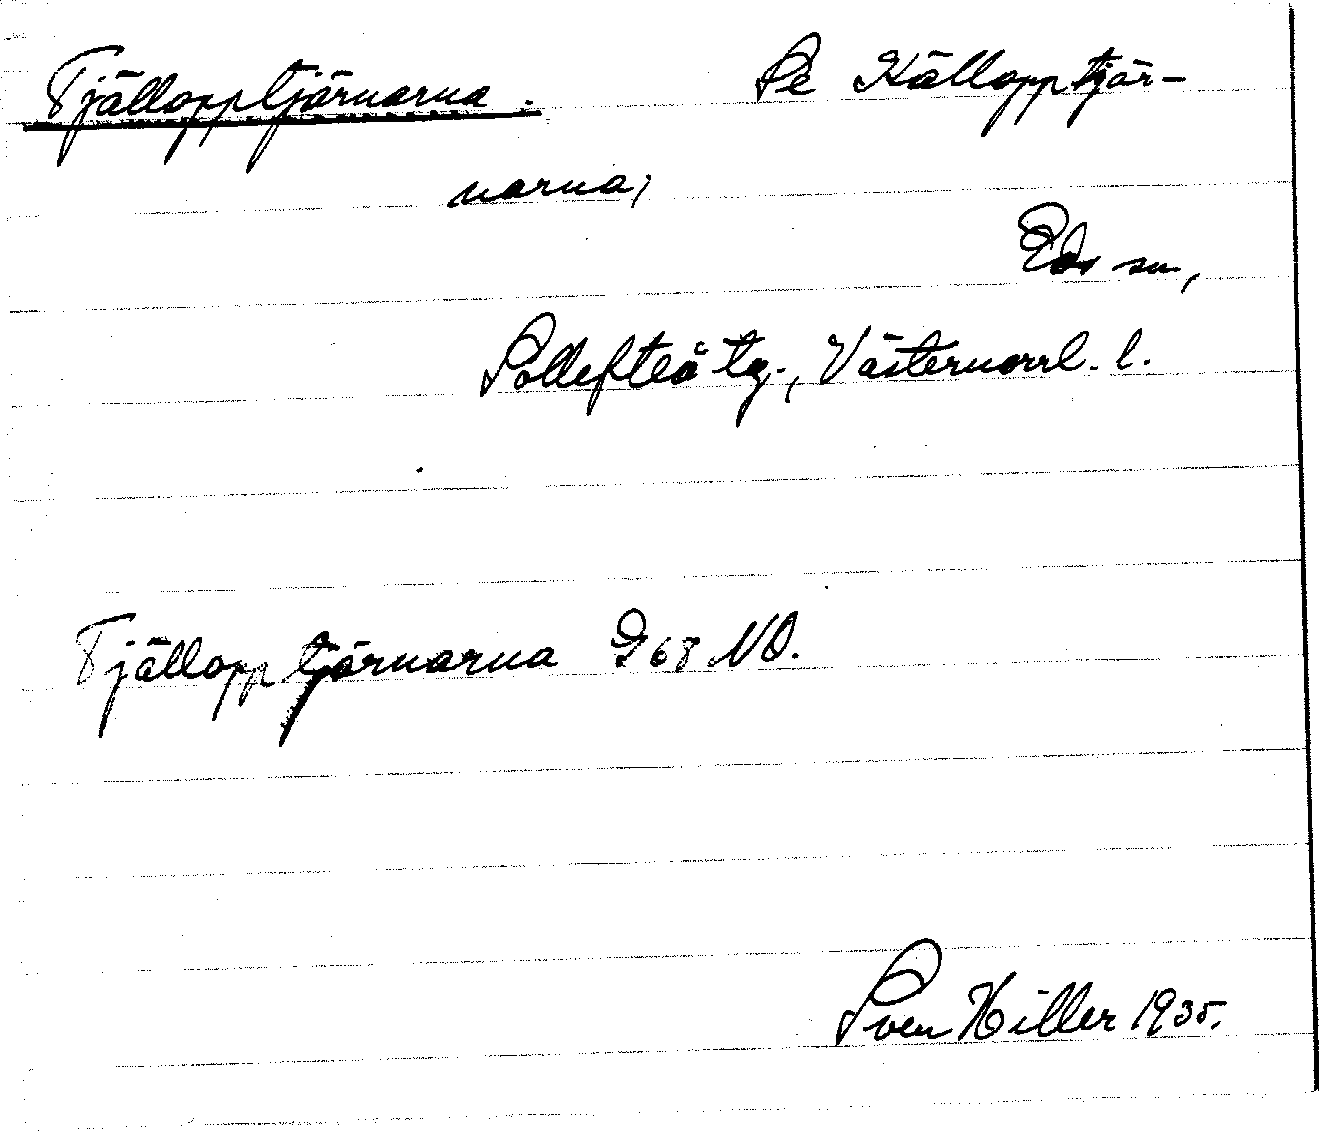 Tjällopptjärnarna. Se Källopptjär-
narna,
Eds sn,
Sollefteå tg., Västernorrl. l.
Tjällopptjärnarna G68 NO.
Sven Hiller 1935.